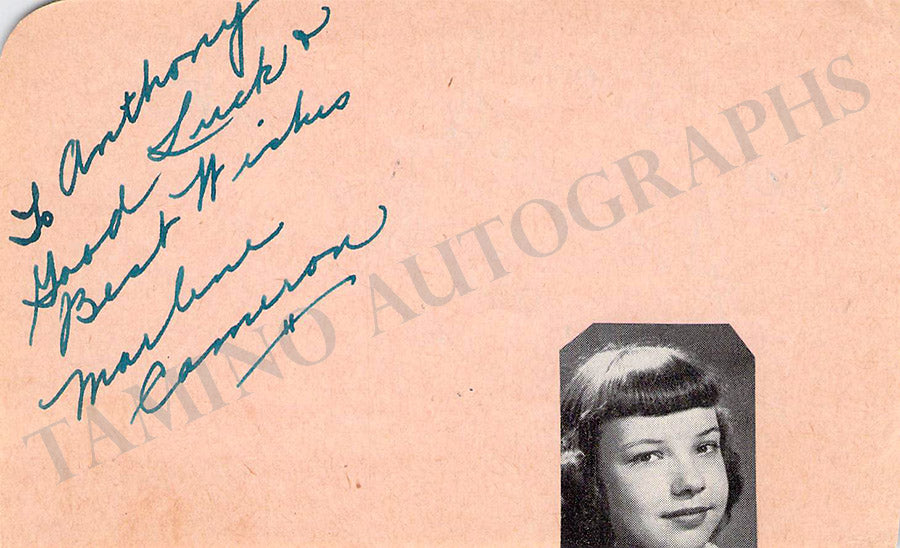 To Anthony
Good Luck &
Best Wishes
Marlene
Cameron
TAMINO AUTOGRAPHS